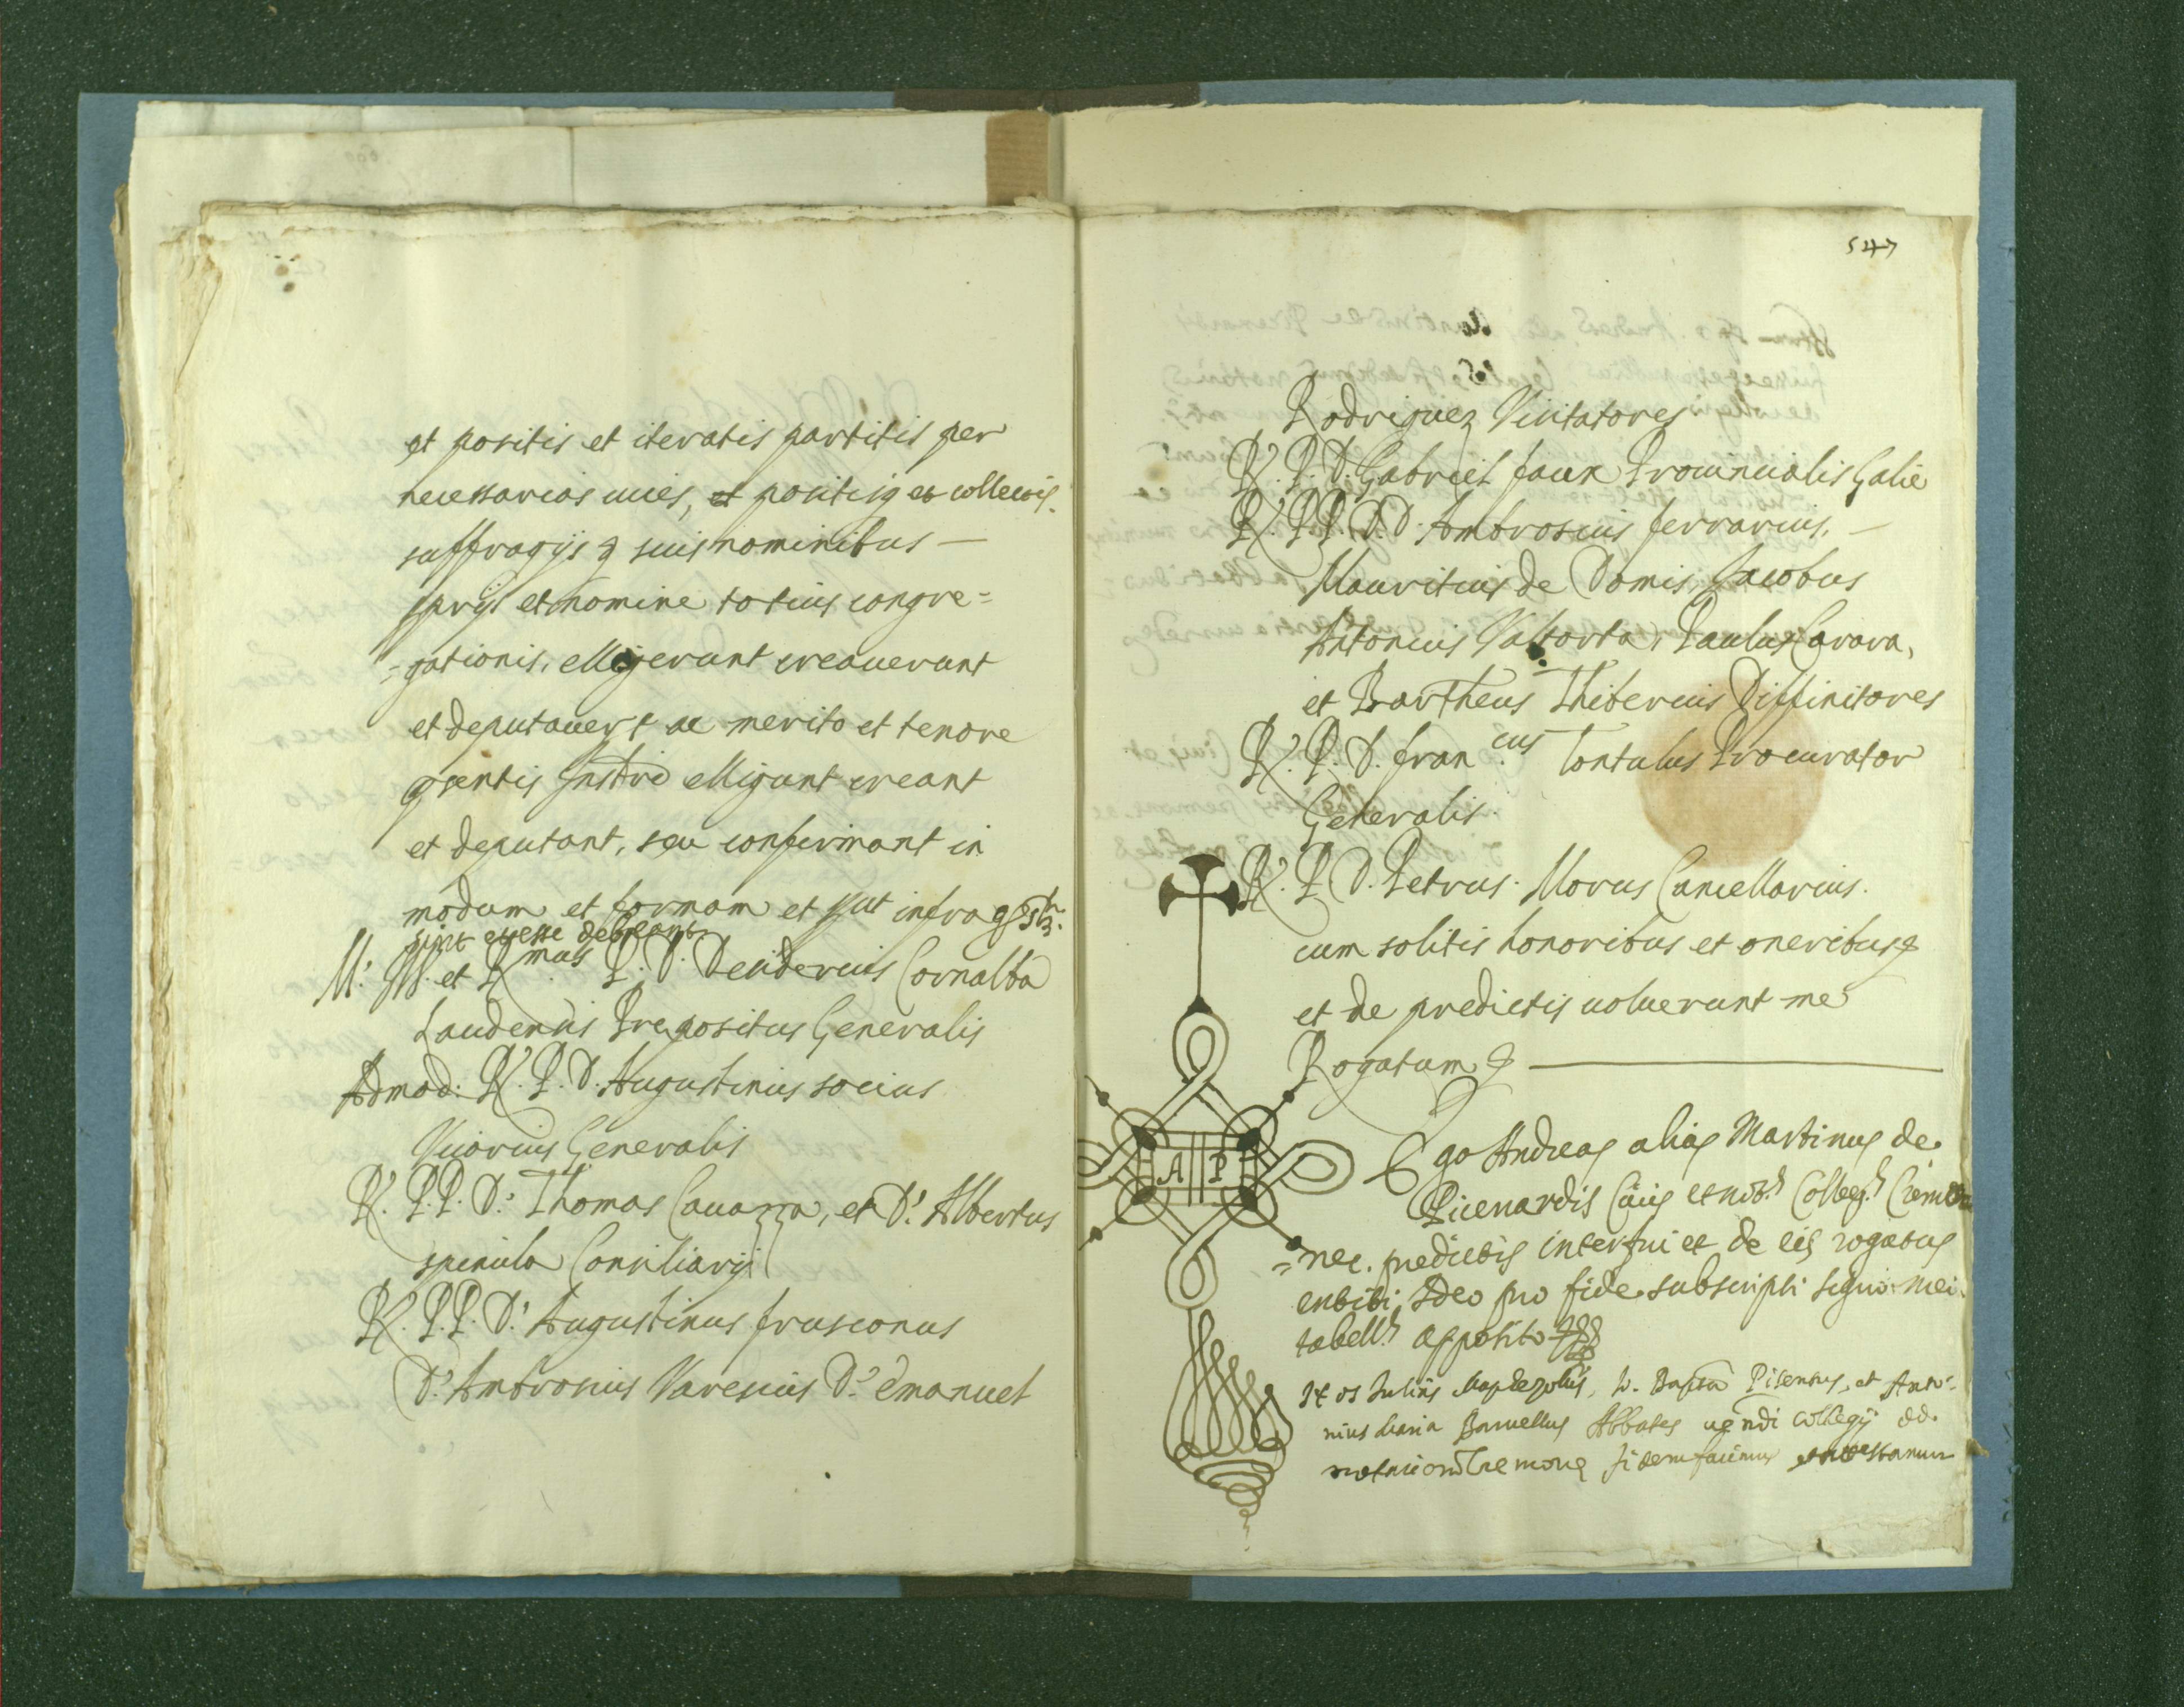 et positis et iteratis partitis per
necessarias uices, et positisq et collectis
suffragijs & suis nominibus —
sprijs et nomine totius congre=
=gationis, elligerunt creauerunt
et deputauert ac merito et tenore
psentis Instrti elligunt creant
et deputant, seu confirmant in
modum et formam et sunt infra
sint et esse debeant
M. Ill. et R.mus P. D. Desiderius Cornalba
Laudensis Prepositus Generalis
Admod: R. P. D. Augustinus socius
Vicarius Generalis
R. P.P. D. Thomas Cauazza, et D. Albertus
spinula Consiliarij
R. P.P. D. Augustinus frusconus
D. Ambrosius Varesius D. Emanuel
547
Rodriguez Visitatores
R. P. D. Gabriel faux Prouincialis Galie
R. P.P. D. D. Ambrosius ferrarius, —
Mauritius de Domis, Jacobus
Antonius Valtorta, Paulus Carara,
et Bartheus Thiberius Diffinitores
R. P. D. fran.cus Tontulus Procurator
Generalis.
R. P. D. Petrus Morus Cancellarius.
cum solitis honoribus et oneribus &
et de predictis uoluerunt me
Rogatum &
A P
Ego Andreas alias Martinus de
Picenardis Ciuis et not.s Colleg.s Cremon
=nec. predictis interfui et de eis rogatus
extiti, Ideo pro fide subscripsi signo mei
tabell.s apposito
Nos Julius Io. Bapta Pisenus, et Anto=
nius Maria Baruellus Abbates uendi Collegij dd.
notariorum Cremone fidem facimus et attestamur